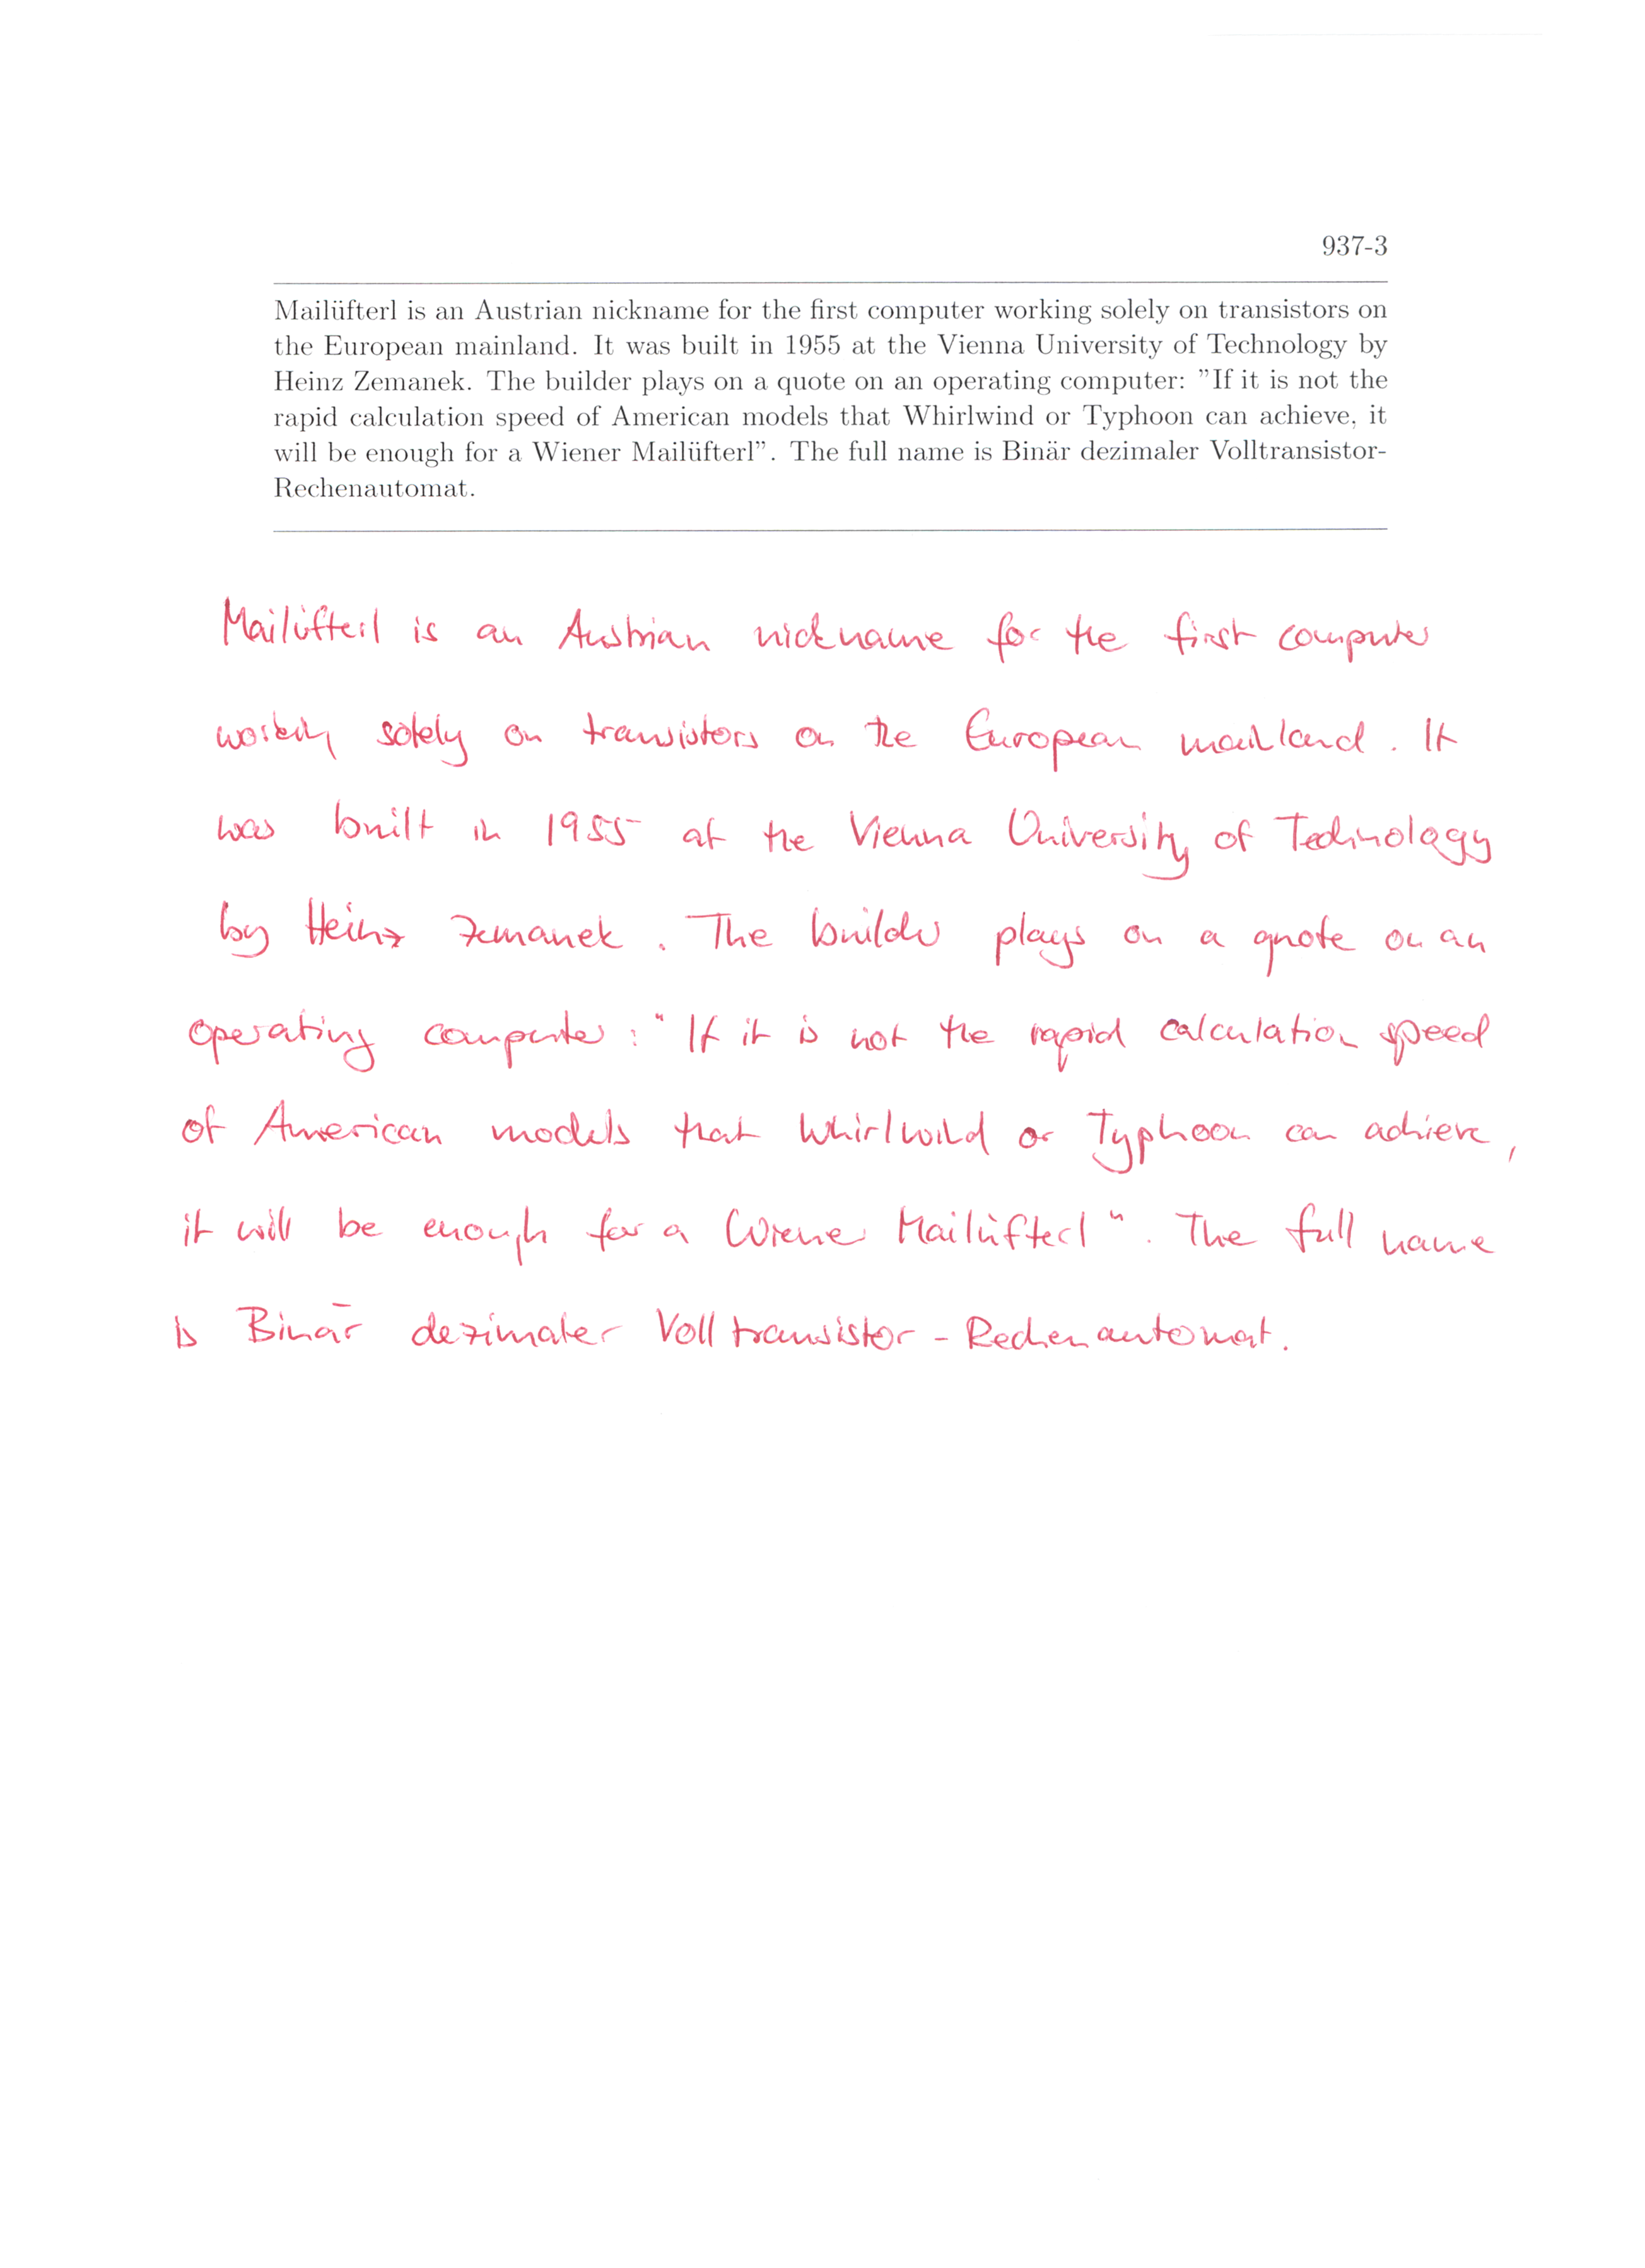 937-3
Mailüfterl is an Austrian nickname for the first computer working solely on transistors on
the European mainland. It was built in 1955 at the Vienna University of Technology by
Heinz Zemanek. The builder plays on a quote on an operating computer: "If it is not the
rapid calculation speed of American models that Whirlwind or Typhoon can achieve, it
will be enough for a Wiener Mailüfterl". The full name is Binär dezimaler Volltransistor-
Rechenautomat.
Mailüfterl is an Austrian nickname for the first computer
working solely on transistors on the European mainland. It
was built in 1955 at the Vienna University of Technology
by Heinz Zemanek. The builder plays on a quote on an
operating computer: "If it is not the rapid calculation speed
of American models that Whirlwind or Typhoon can achieve,
it will be enough for a Wiener Mailüfterl". The full name
is Binär dezimaler Volltransistor-Rechenautomat.